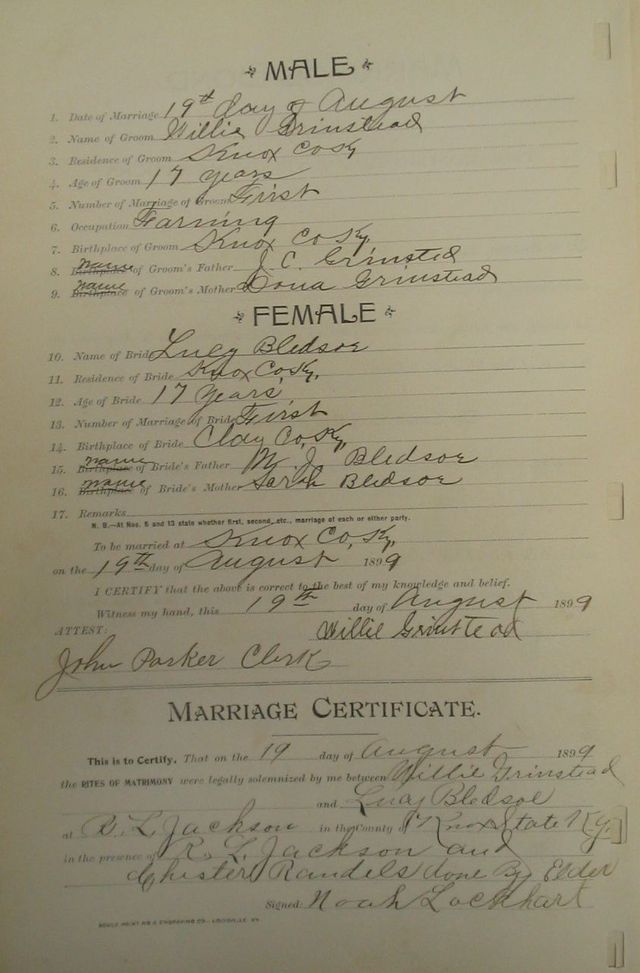 MALE
1. Date of Marriage 19th day of August
2. Name of Groom Willie Grinstead
3. Residence of Groom Knox Co Ky
4. Age of Groom 17 years
5. Number of Marriage of Groom First
6. Occupation Farming
7. Birthplace of Groom Knox Co Ky,
8. Birthplace name of Groom's Father J. C. Grinsted
9. Birthplace name of Groom's Mother Dona Grinstead
FEMALE
10. Name of Bride Lucy Bledsoe
11. Residence of Bride Knox Co Ky,
12. Age of Bride 17 Years,
13. Number of Marriage of Bride First
14. Birthplace of Bride Clay Co, Ky,
15. Birthplace name of Bride's Father M. J. Bledsoe
16. Birthplace name of Bride's Mother Sarah Bledsoe
17. Remarks
N. B.—At Nos. 5 and 13 state whether first, second, etc., marriage of each or either party.
To be married at Knox Co, Ky,
on the 19th day of August 1899
I CERTIFY that the above is correct to the best of my knowledge and belief.
Witness my hand, this 19th day of August 1899
ATTEST: Willie Grinstead
John Parker Clerk
MARRIAGE CERTIFICATE.
This is to Certify, That on the 19 day of August 1899
the RITES OF MATRIMONY were legally solemnized by me between Willie Grinstead
and Lucy Bledsoe
at R. L. Jackson in the County of Knox State Ky,
in the presence of R. L. Jackson and
Chister Randels done By Elder
Signed: Noah Lockhart